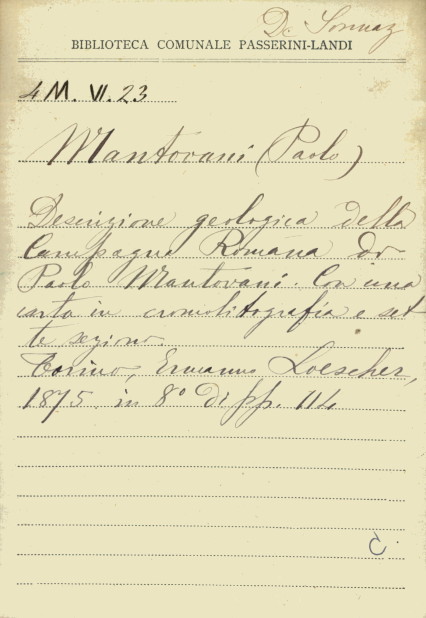 De Sonnaz
BIBLIOTECA COMUNALE PASSERINI-LANDI
4 M. VI. 23
Mantovani (Paolo)
Descrizione geologica della
Campagna Romana di
Paolo Mantovani. Con una
carta in cromolitografia e set-
te sezioni
Torino, Ermanno Loescher,
1875 in 8° di pp. 114
C